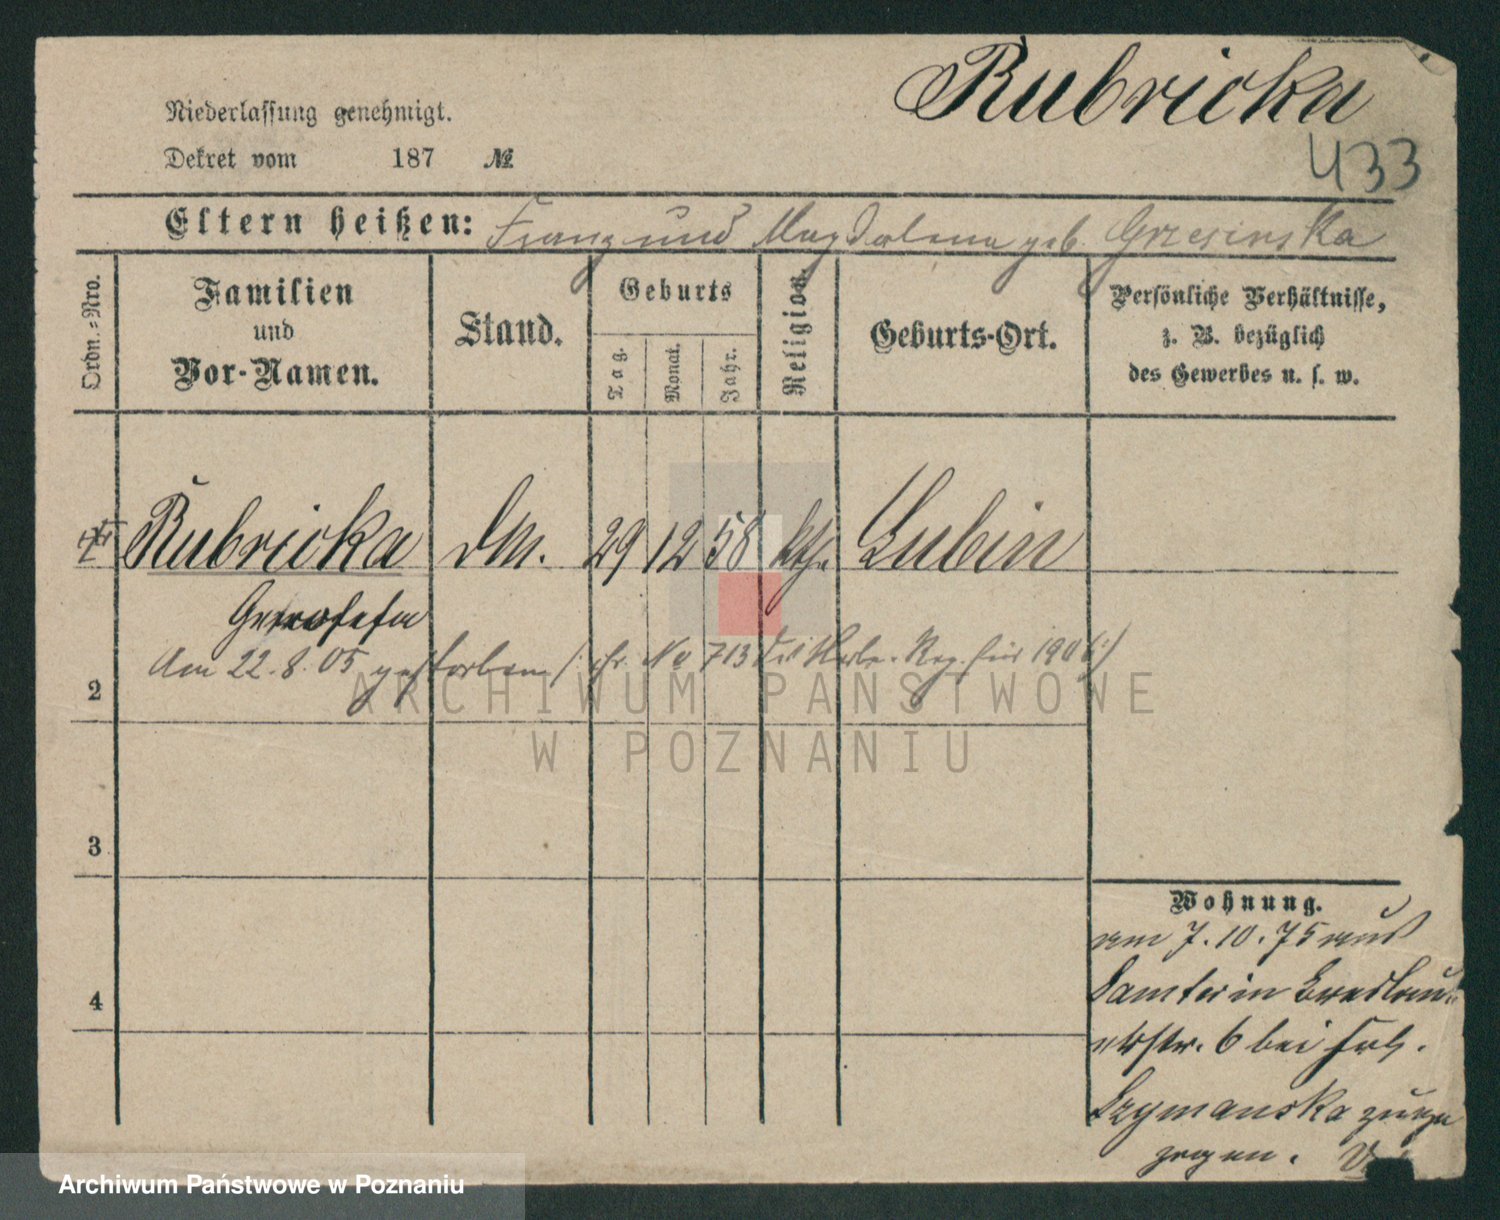 Rubricka
433
Niederlassung genehmigt.
Dekret vom 187 №
Eltern heißen: Franz und Magdalena geb. Grzesinska
Ordn.=Nro.
Familien
und
Vor-Namen.
Stand.
Geburts
Tag.
Monat.
Jahr.
Religion.
Geburts-Ort.
Persönliche Verhältnisse,
z. B. bezüglich
des Gewerbes u. s. w.
Rubricka Dm. 29 12 58 kth. Lubin
Am 22.8.05 gestorben /: No 713 Reg. für 1906 :/
2
3
4
Wohnung.
am 7.10.75 aus
Samter in Breslau-
erstr. 6 bei
Szymanska zuge
zogen.
ARCHIWUM PAŃSTWOWE
W POZNANIU
Archiwum Państwowe w Poznaniu